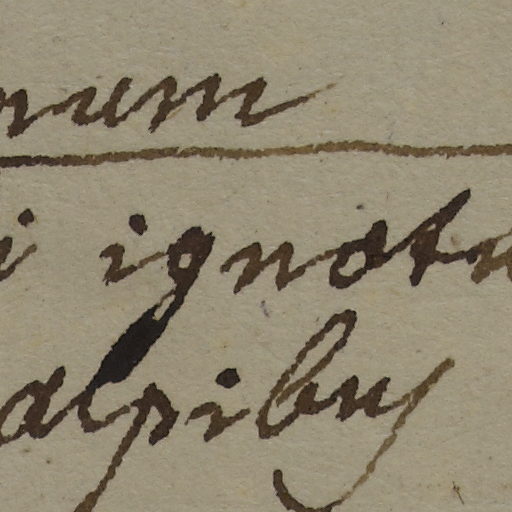 num
i ignotu
alpibus